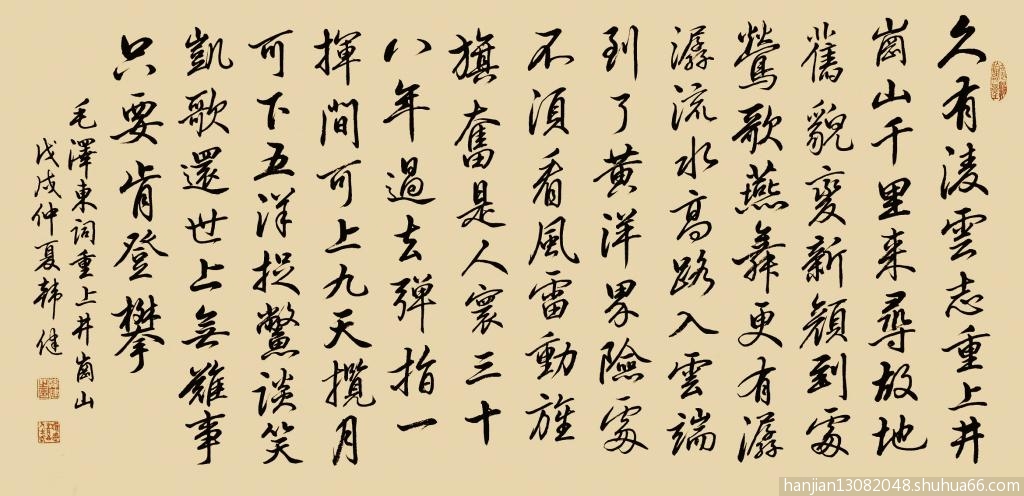 久有凌雲志重上井
崗山千里来尋故地
舊貌變新顏到處
鶯歌燕舞更有潺
潺流水高路入雲端
到了黃洋界險處
不須看風雷動旌
旗奮是人寰三十
八年過去彈指一
揮間可上九天攬月
可下五洋捉鱉談笑
凱歌還世上無難事
只要肯登攀
毛澤東詞重上井崗山
戊戌仲夏韩健
hanjian13082048.shuhua66.com